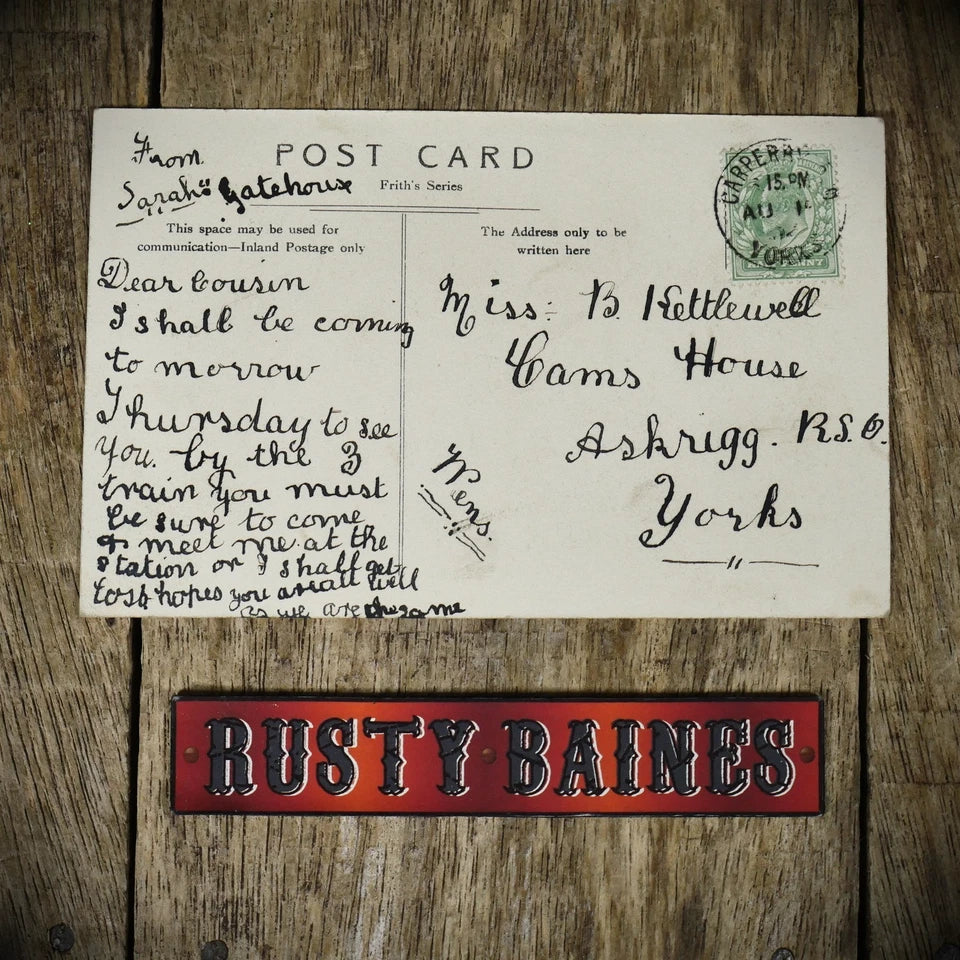 From
Sarah Gatehouse
POST CARD
Frith's Series
This space may be used for
communication—Inland Postage only
The Address only to be
written here
YORKS
Dear Cousin
I shall be coming
to morrow
Thursday to see
You. by the 3
train you must
be sure to come
& meet me at the
station or I shall get
lost hopes you are all well
as we are the same
Miss: B. Kettlewell
Cams House
Askrigg. R.S.O.
Yorks
Wens.
RUSTY BAINES